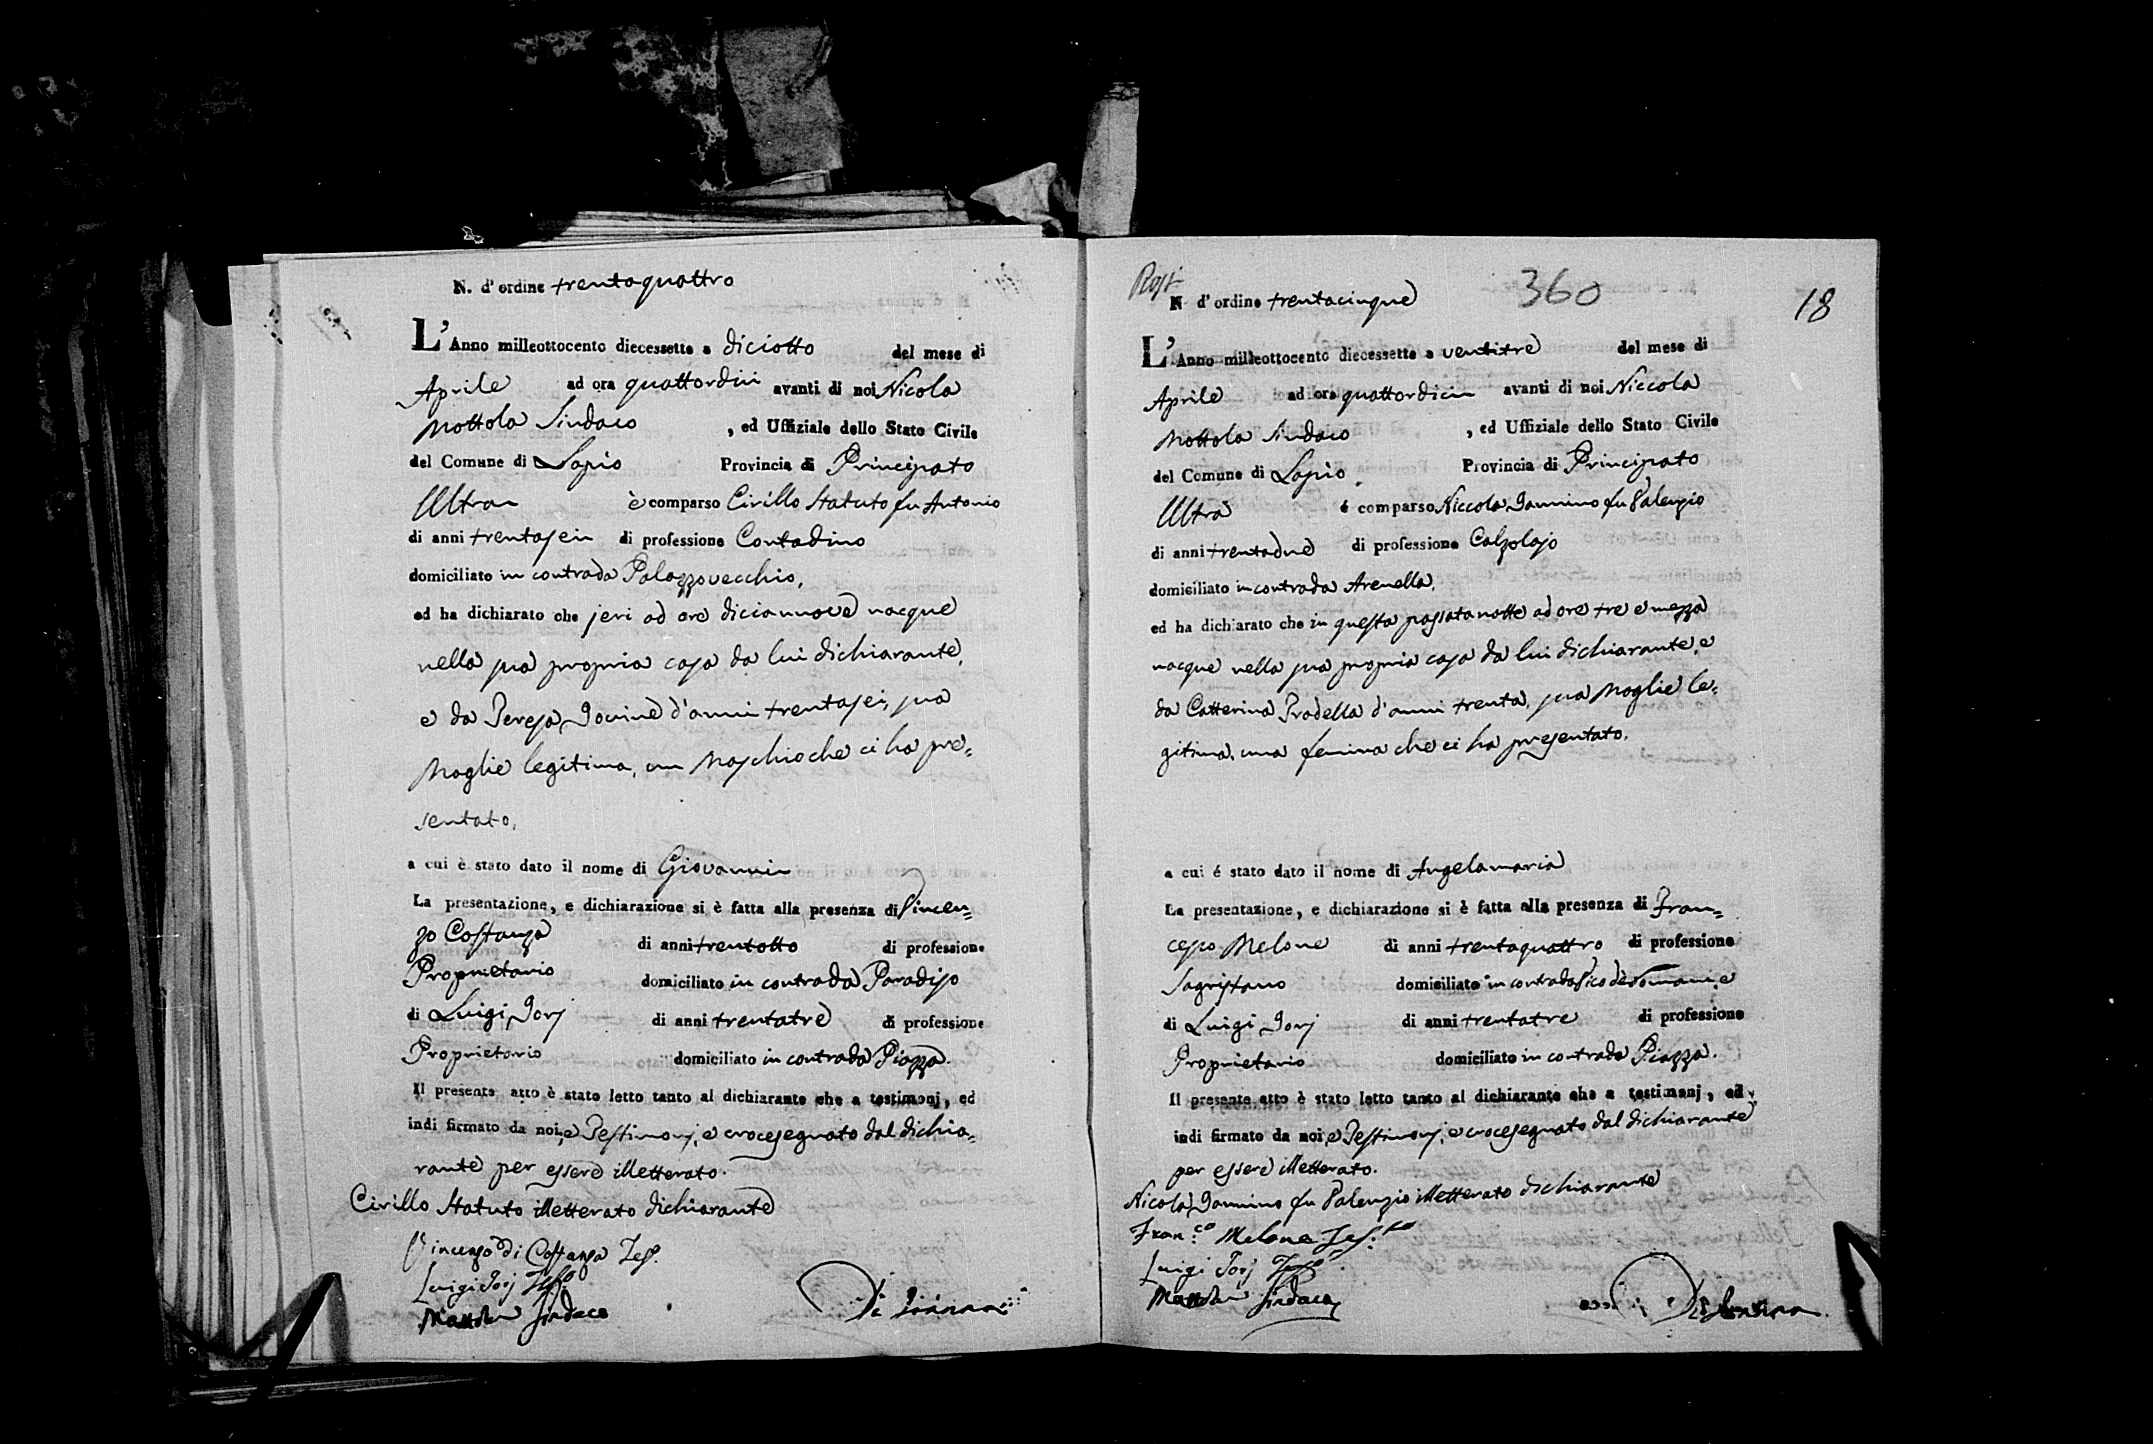 N. d'ordine trentaquattro
L'Anno milleottocento diecessette a diciotto del mese di
Aprile ad ora quattordici avanti di noi Nicola
Mottola Sindaco , ed Uffiziale dello Stato Civile
del Comune di Lapio Provincia di Principato
Ultra è comparso Cirillo Statuto fu Antonio
di anni trentasei di professione Contadino
domiciliato in contrada Palazzovecchio,
ed ha dichiarato che jeri ad ore diciannove nacque
nella sua propria casa da lui dichiarante,
e da Teresa Iovine d'anni trentasei, sua
Moglie legitima, un Maschio che ci ha pre=
sentato,
a cui è stato dato il nome di Giovanni
La presentazione, e dichiarazione si è fatta alla presenza di Vincen=
zo Costanza di anni trentotto di professione
Proprietario domiciliato in contrada Paradiso
di Luigi Iorj di anni trentatre di professione
Proprietario domiciliato in contrada Piazza.
Il presente atto è stato letto tanto al dichiarante che a testimonj, ed
indi firmato da noi, e Testimonj, e crocesegnato dal dichia=
rante per essere illetterato.
Cirillo Statuto illetterato dichiarante
Vincenzo di Costanza Tes.o
Luigi Iorj Tes.o
Mottola Sindaco
Post
360
18
N d'ordine trentacinque
L'Anno milleottocento diecessette a ventitre del mese di
Aprile ad ora quattordici avanti di noi Niccola
Mottola Sindaco , ed Uffiziale dello Stato Civile
del Comune di Lapio Provincia di Principato
Ultra é comparso Niccola Iannino fu Valenzio
di anni trentadue di professione Calzolajo
domiciliato in contrada Arenella,
ed ha dichiarato che in questa passata notte ad ore tre e mezza
nacque nella sua propria casa da lui dichiarante, e
da Catterina Pradella d'anni trenta, sua Moglie le=
gitima, una femina che ci ha presentato.
a cui é stato dato il nome di Angelamaria
La presentazione, e dichiarazione si è fatta alla presenza di Fran=
cesco Melone di anni trentaquattro di professione
Sagristano domiciliato in contrada Vico de e
di Luigi Iorj di anni trentatre di professione
Proprietario domiciliato in contrada Piazza.
Il presente atto è stato letto tanto al dichiarante che a testimonj, ed
indi firmato da noi, e Testimonj, e crocesegnato dal dichiarante
per essere illetterato.
Nicola Iannino fu Valenzio illetterato dichiarante
Fran.co Melone Tes.to
Luigi Iorj Tes.o
Mottola Sindaco